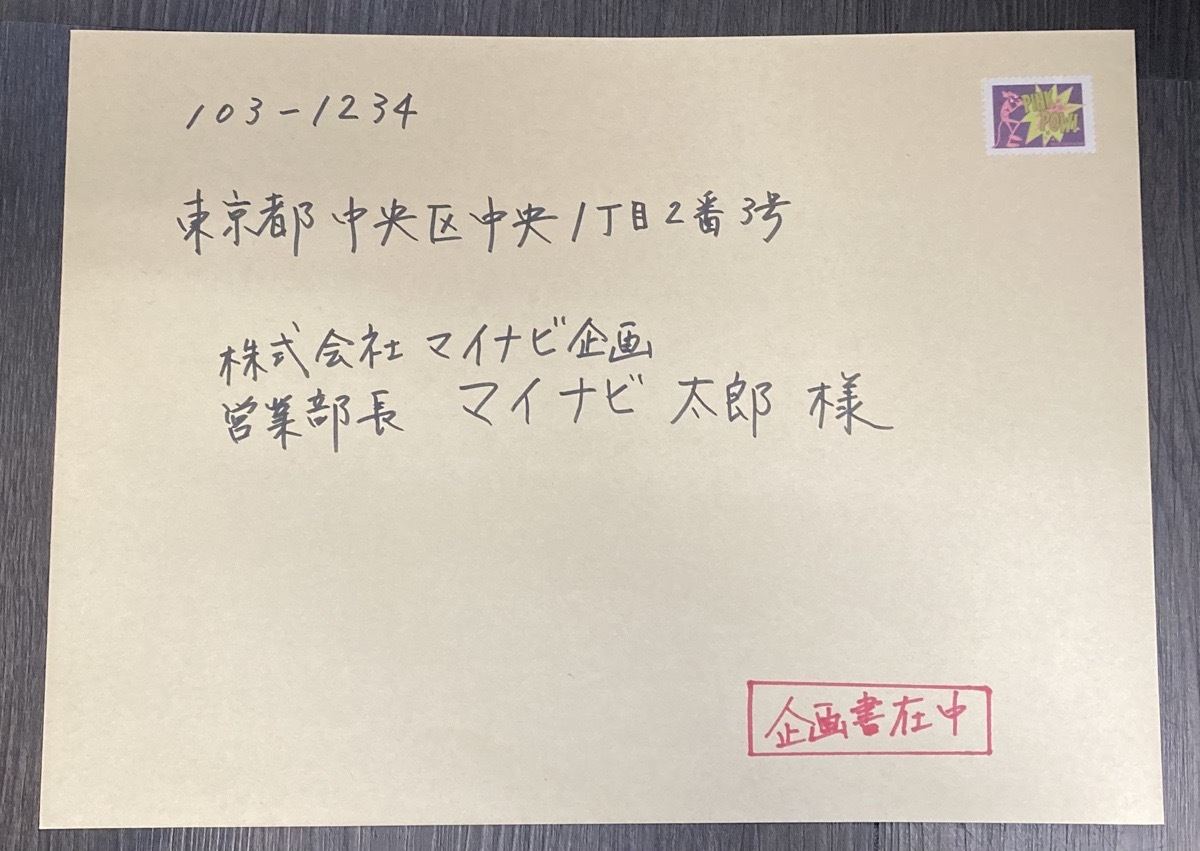 103-1234
PINK POW!
東京都中央区中央1丁目2番3号
株式会社マイナビ企画
営業部長 マイナビ 太郎 様
企画書在中